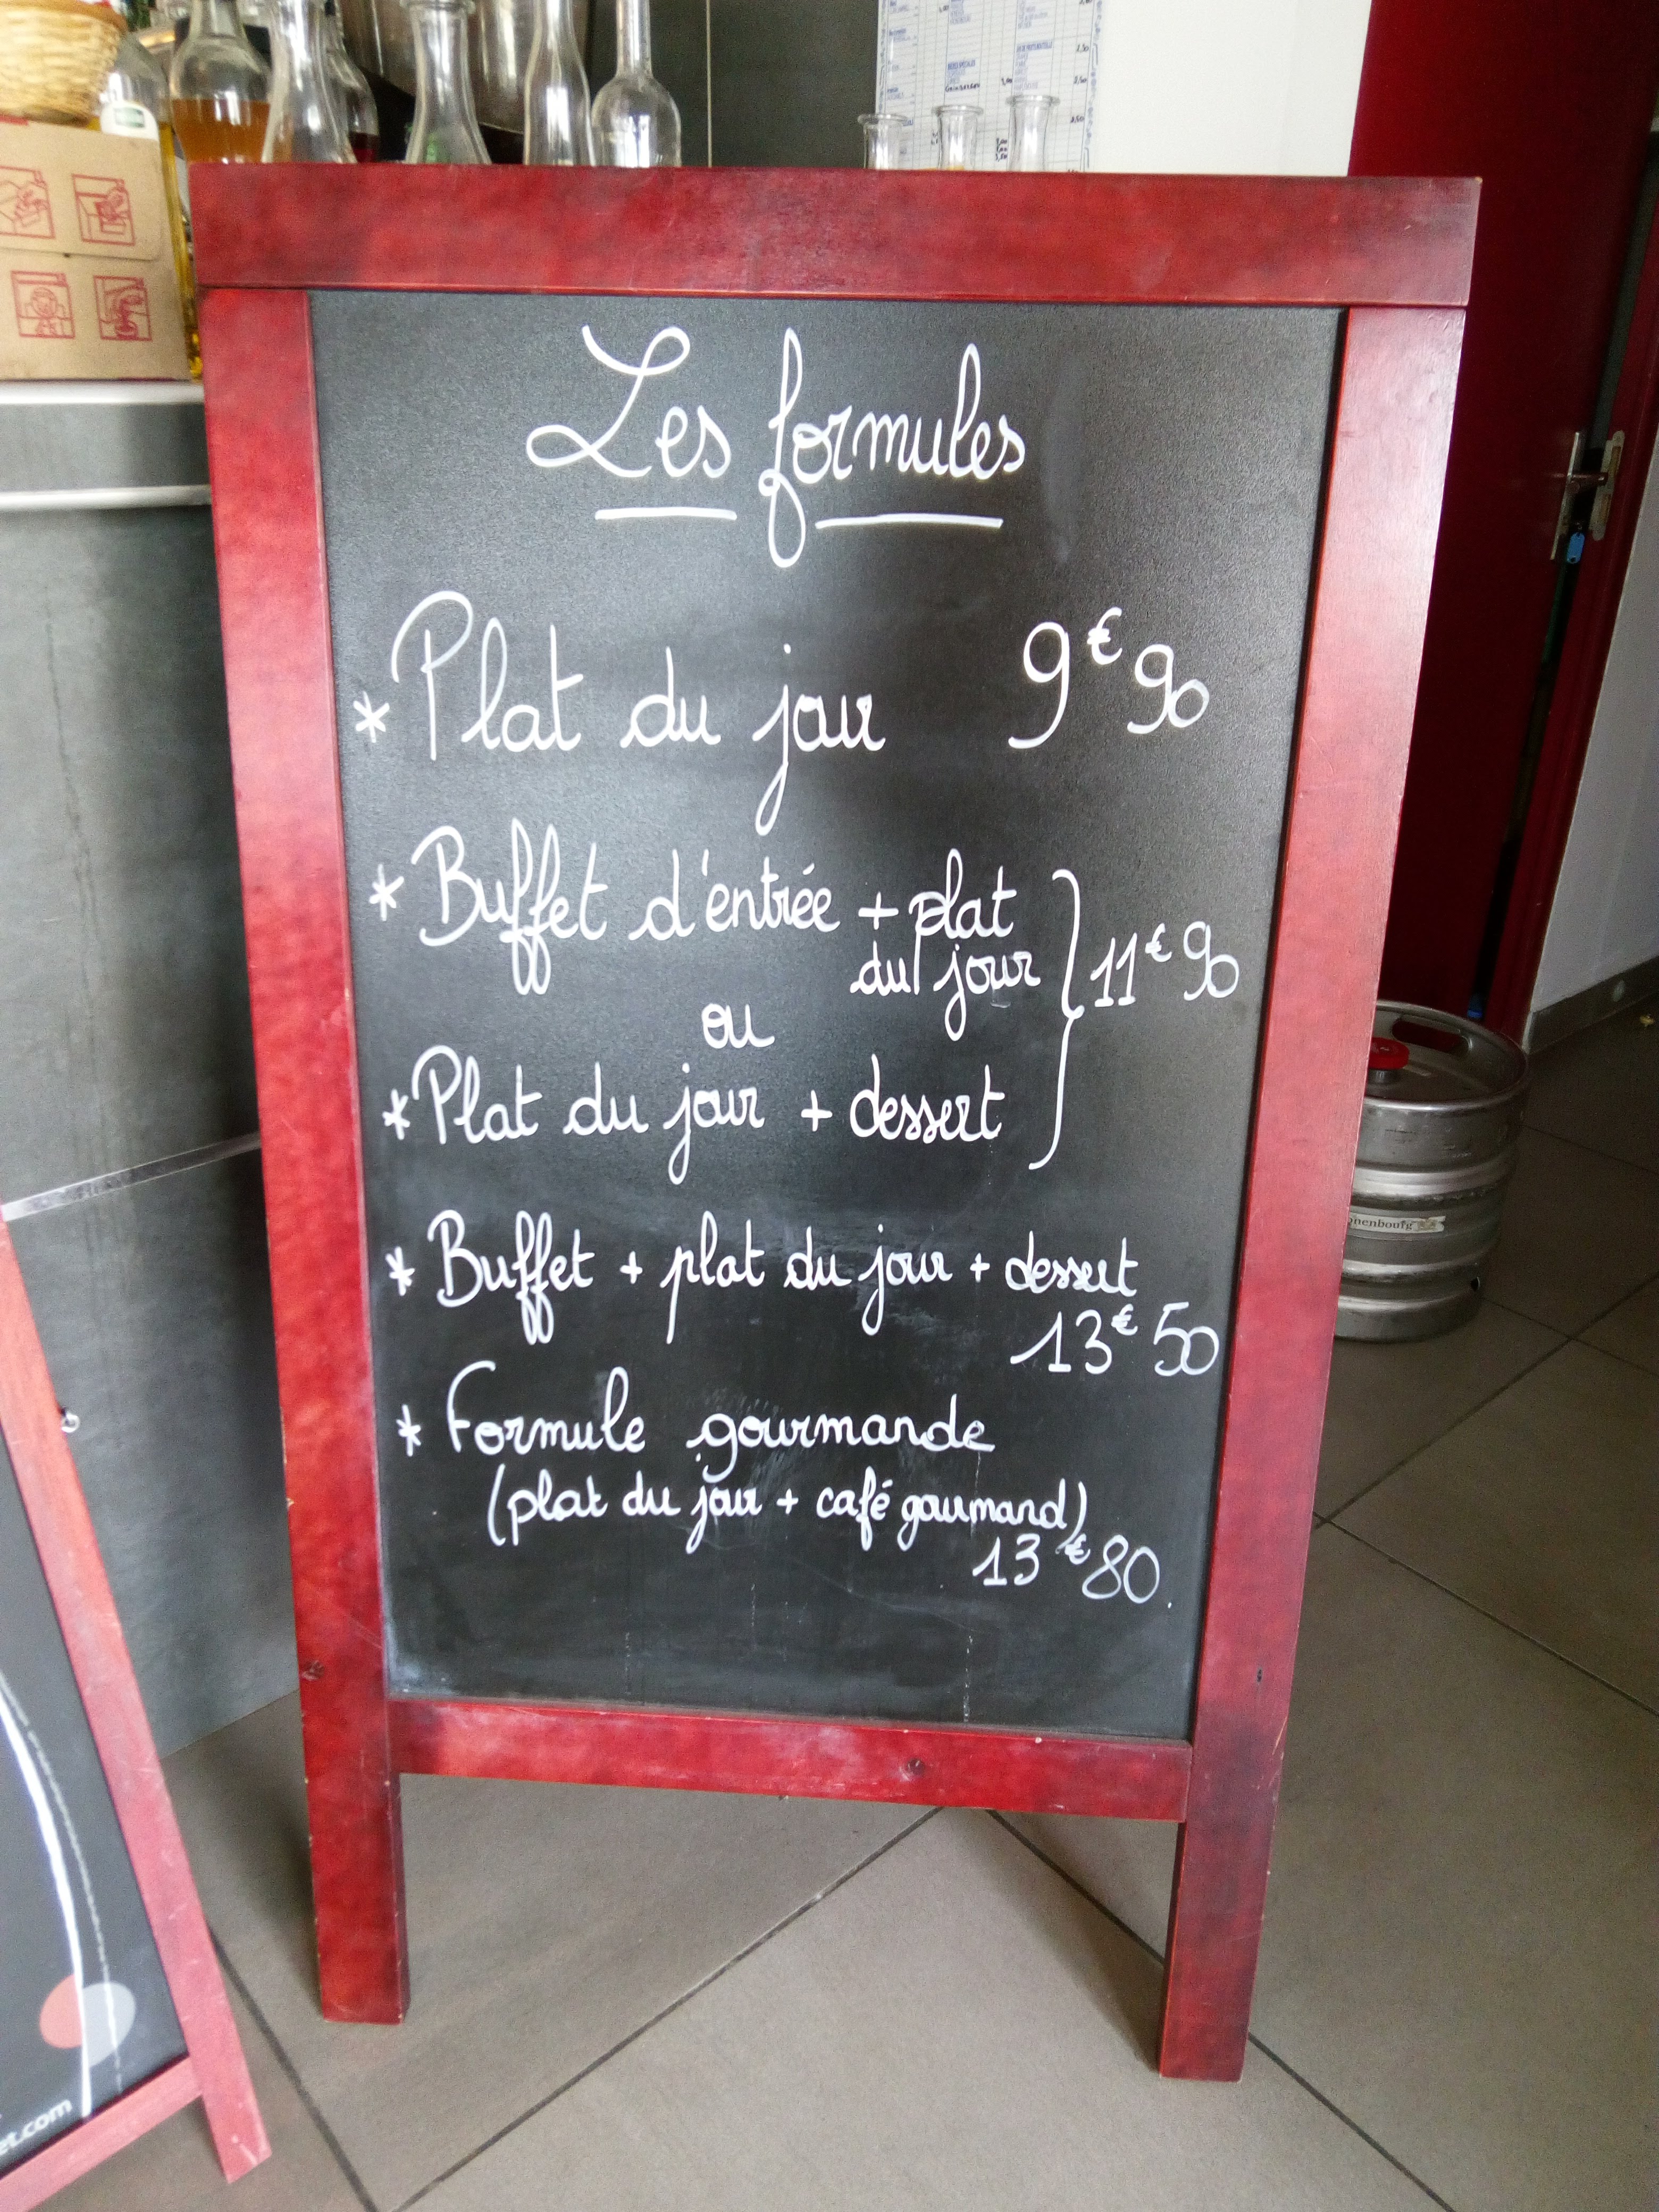 Les formules
* Plat du jour 9€90
* Buffet d'entrée + plat
du jour
11€90
ou
* Plat du jour + dessert
* Buffet + plat du jour + dessert
13€50
* Formule gourmande
(plat du jour + café gourmand)
13€80.